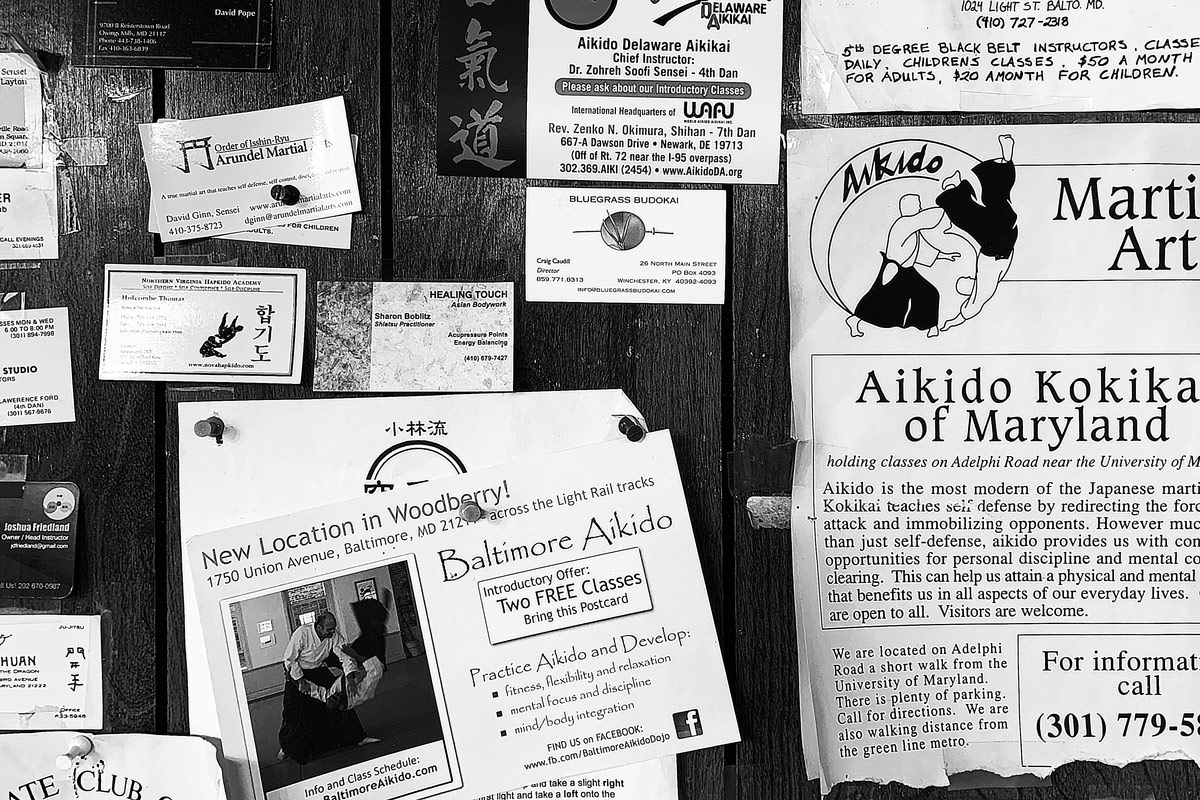 David Pope
9700 B Reisterstown Road
Owings Mills, MD 21117
Phone 443-738-1406
Fax 410-363-6839
Sensei
Layton
CALL EVENINGS
Order of Isshin-Ryu
Arundel Martial Arts
A true martial art that teaches self defense, self control,
David Ginn, Sensei
410-375-8723
www.arundelmartialarts.com
dginn@arundelmartialarts.com
FOR CHILDREN
ADULTS,
氣
道
DELAWARE
AIKIKAI
Aikido Delaware Aikikai
Chief Instructor:
Dr. Zohreh Soofi Sensei - 4th Dan
Please ask about our Introductory Classes
International Headquarters of
Rev. Zenko N. Okimura, Shihan - 7th Dan
667-A Dawson Drive • Newark, DE 19713
(Off of Rt. 72 near the I-95 overpass)
302.369.AIKI (2454) • www.AikidoDA.org
1024 LIGHT ST. BALTO. MD.
(410) 727-2318
5th DEGREE BLACK BELT INSTRUCTORS. CLASSE
DAILY. CHILDRENS CLASSES. $50 A MONTH
FOR ADULTS, $20 A MONTH FOR CHILDREN.
BLUEGRASS BUDOKAI
Craig Caudill
Director
859.771.8313
26 NORTH MAIN STREET
PO BOX 4093
WINCHESTER, KY 40392-4093
INFO@BLUEGRASSBUDOKAI.COM
NORTHERN VIRGINIA HAPKIDO ACADEMY
SELF DEFENSE • SELF CONFIDENCE • SELF DISCIPLINE
Holcombe Thomas
합기도
www.novahapkido.com
HEALING TOUCH
Asian Bodywork
Sharon Boblitz
Shiatsu Practitioner
Acupressure Points
Energy Balancing
(410) 679-7427
SSES MON & WED
6:00 TO 8:00 PM
(301) 894-7998
STUDIO
TORS
LAWERENCE FORD
(4th DAN)
(301) 567-9676
Joshua Friedland
Owner / Head Instructor
jdfriedland@gmail.com
Call Us! 202 670-0987
JU-JITSU
HUAN
THE DRAGON
AVENUE
MARYLAND 21222
OFFICE
633-5946
ATE CLUB
小林流
New Location in Woodberry!
1750 Union Avenue, Baltimore, MD across the Light Rail tracks
Baltimore Aikido
Introductory Offer:
Two FREE Classes
Bring this Postcard
Practice Aikido and Develop:
▪ fitness, flexibility and relaxation
▪ mental focus and discipline
▪ mind/body integration
FIND US on FACEBOOK:
www.fb.com/BaltimoreAikidoDojo
f
Info and Class Schedule:
BaltimoreAikido.com
and take a slight right
first light and take a left onto the
Aikido
Marti
Art
Aikido Kokika
of Maryland
holding classes on Adelphi Road near the University of M
Aikido is the most modern of the Japanese marti
Kokikai teaches self defense by redirecting the for
attack and immobilizing opponents. However muc
than just self-defense, aikido provides us with con
opportunities for personal discipline and mental co
clearing. This can help us attain a physical and mental
that benefits us in all aspects of our everyday lives.
are open to all. Visitors are welcome.
We are located on Adelphi
Road a short walk from the
University of Maryland.
There is plenty of parking.
Call for directions. We are
also walking distance from
the green line metro.
For informati
call
(301) 779-58